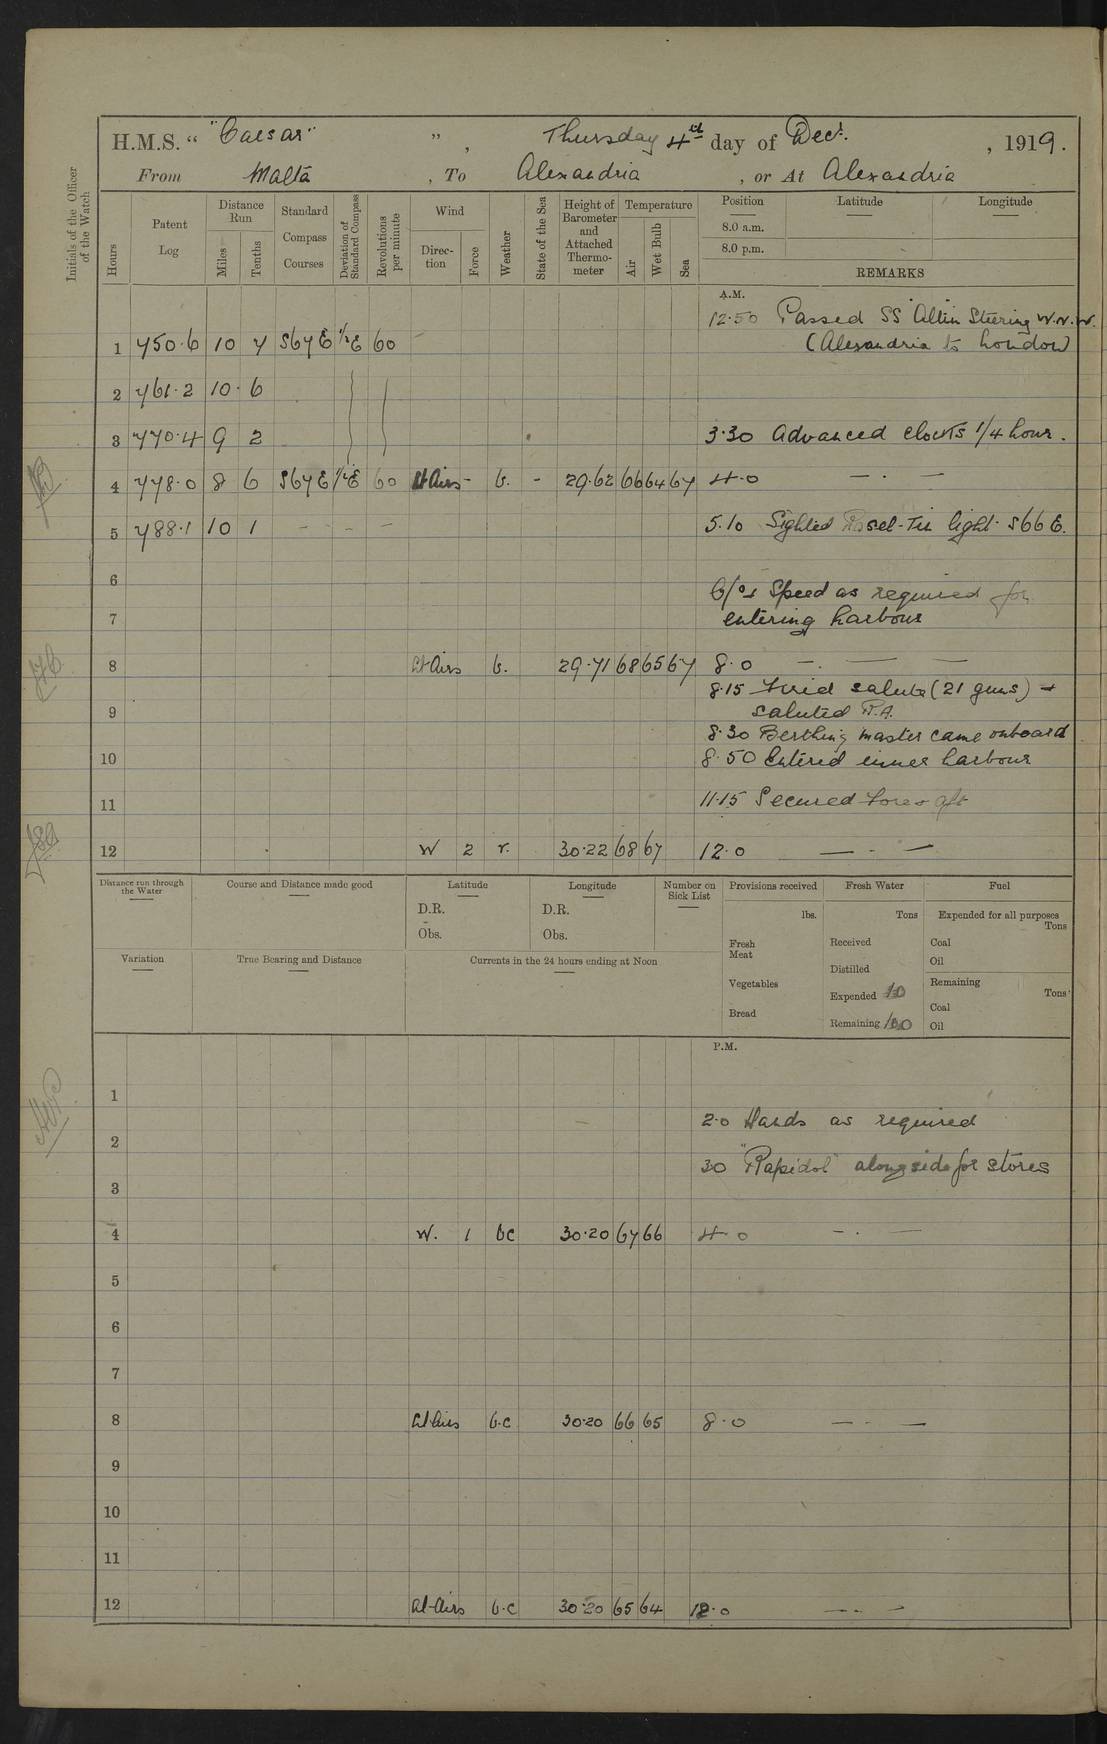 H.M.S. " "Caesar" ", Thursday 4th day of Decr., 1919.
From Malta, To Alexandria, or At Alexandria
Initials of the Officer of the Watch
Hours
Patent Log
Distance Run
Miles
Tenths
Standard Compass Courses
Deviation of Standard Compass
Revolutions per minute
Wind
Direction
Force
Weather
State of the Sea
Height of Barometer and Attached Thermometer
Temperature
Air
Wet Bulb
Sea
Position Latitude Longitude
8.0 a.m.
8.0 p.m.
REMARKS
A.M.
12.50 Passed SS "Altin" Steering W.N.W.
1 750.6 10 7 S67E 1/2E 60 (Alexandria to London)
2 761.2 10. 6
3 770.4 9 2 3.30 Advanced clocks 1/4 hour.
4 778.0 8 6 S67E 1/2E 60 Lt Airs - b. - 29.62 66 64 67 4.0 — . —
5 788.1 10 1 - - - - 5.10 Sighted Rasel-Tin light. S66E.
6
Co/& Speed as required for
7 entering harbour
8 Lt Airs b. 29.71 68 65 67 8.0 —. — —
8.15 Fired salute (21 guns) +
9 saluted R.A.
8.30 Berthing master came onboard
10 8.50 Entered inner harbour
11 11.15 Secured fore & aft
12 W 2 r. 30.22 68 67 12.0 — . —
Distance run through the Water
Course and Distance made good
Latitude
D.R.
Obs.
Longitude
D.R.
Obs.
Number on Sick List
Provisions received
lbs.
Fresh Meat
Vegetables
Bread
Fresh Water
Tons
Received
Distilled
Expended 10
Remaining 100
Fuel
Expended for all purposes
Tons
Coal
Oil
Remaining
Tons
Coal
Oil
Variation
True Bearing and Distance
Currents in the 24 hours ending at Noon
P.M.
1
2.0 Hands as required
2
30 "Rapidol" alongside for stores
3
4 W. 1 bc 30.20 67 66 4.0 — . —
5
6
7
8 Lt Airs b.c 30.20 66 65 8.0 — . —
9
10
11
12 Lt-Airs b.c 30.20 65 64 12.0 — . —